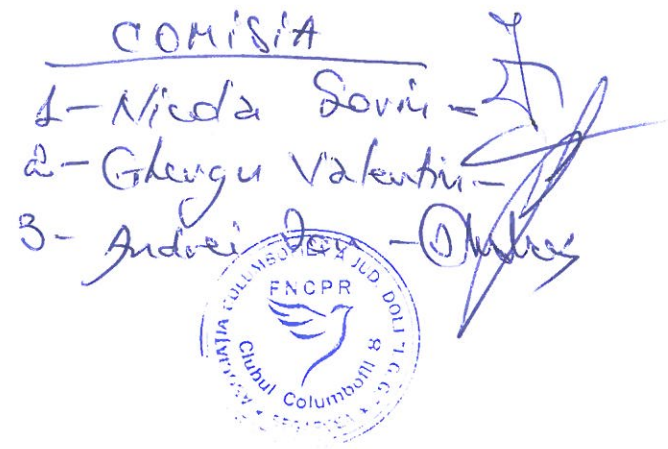 COMISIA
1- Nicola Sorin -
2- Ghengu Valentin -
3- Andrei Dan -
ASOCIAȚIA COLUMBOFILĂ A JUD. DOLJ
FNCPR
Clubul Columbofil 8